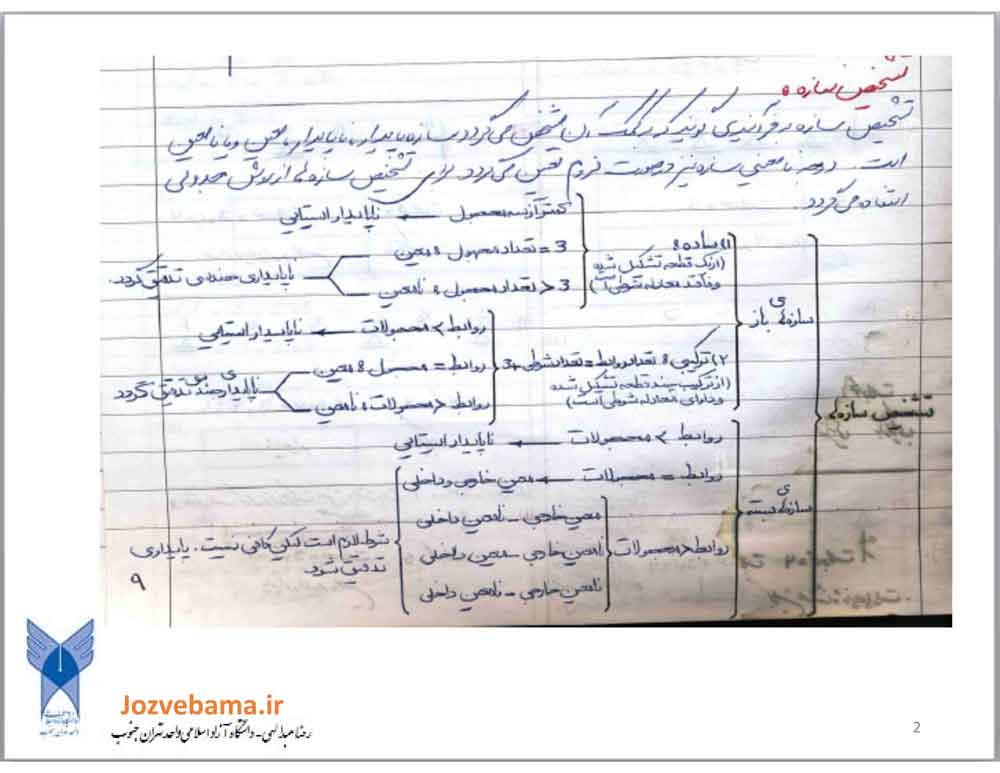 تشخیص سازه :
تشخیص سازه به فرآیندی گویند که به کمک آن مشخص می گردد سازه پایدار، ناپایدار، معین و یا نامعین
است. درجه نامعینی سازه نیز در صورت لزوم تعیین می گردد. برای تشخیص سازه ها از روش جدولی
استفاده می گردد.
تشخیص سازه
سازه ی باز
1) ساده :
(از یک قطعه تشکیل شده
و فاقد معادله شرطی است)
کمتر از سه مجهول ← ناپایدار استاتیکی
3 = تعداد مجهول : معین
3 < تعداد مجهول : نامعین
ناپایداری هندسی تدقیق گردد.
2) ترکیبی : تعداد روابط = تعداد شرطی + 3
(از ترکیب چند قطعه تشکیل شده
و دارای معادله شرطی است)
روابط > مجهولات ← ناپایدار استاتیکی
روابط = مجهول : معین
روابط < مجهولات : نامعین
ناپایداری هندسی تدقیق گردد
سازه ی بسته
روابط > مجهولات ← ناپایدار استاتیکی
روابط = مجهولات ← معین خارجی و داخلی
روابط < مجهولات
معین خارجی - نامعین داخلی
نامعین خارجی - معین داخلی
نامعین خارجی - نامعین داخلی
شرط لازم است لیکن کافی نیست. پایداری
تدقیق شود
9
Jozvebama.ir
رضا عبدالهی - دانشگاه آزاد اسلامی واحد تهران جنوب
2